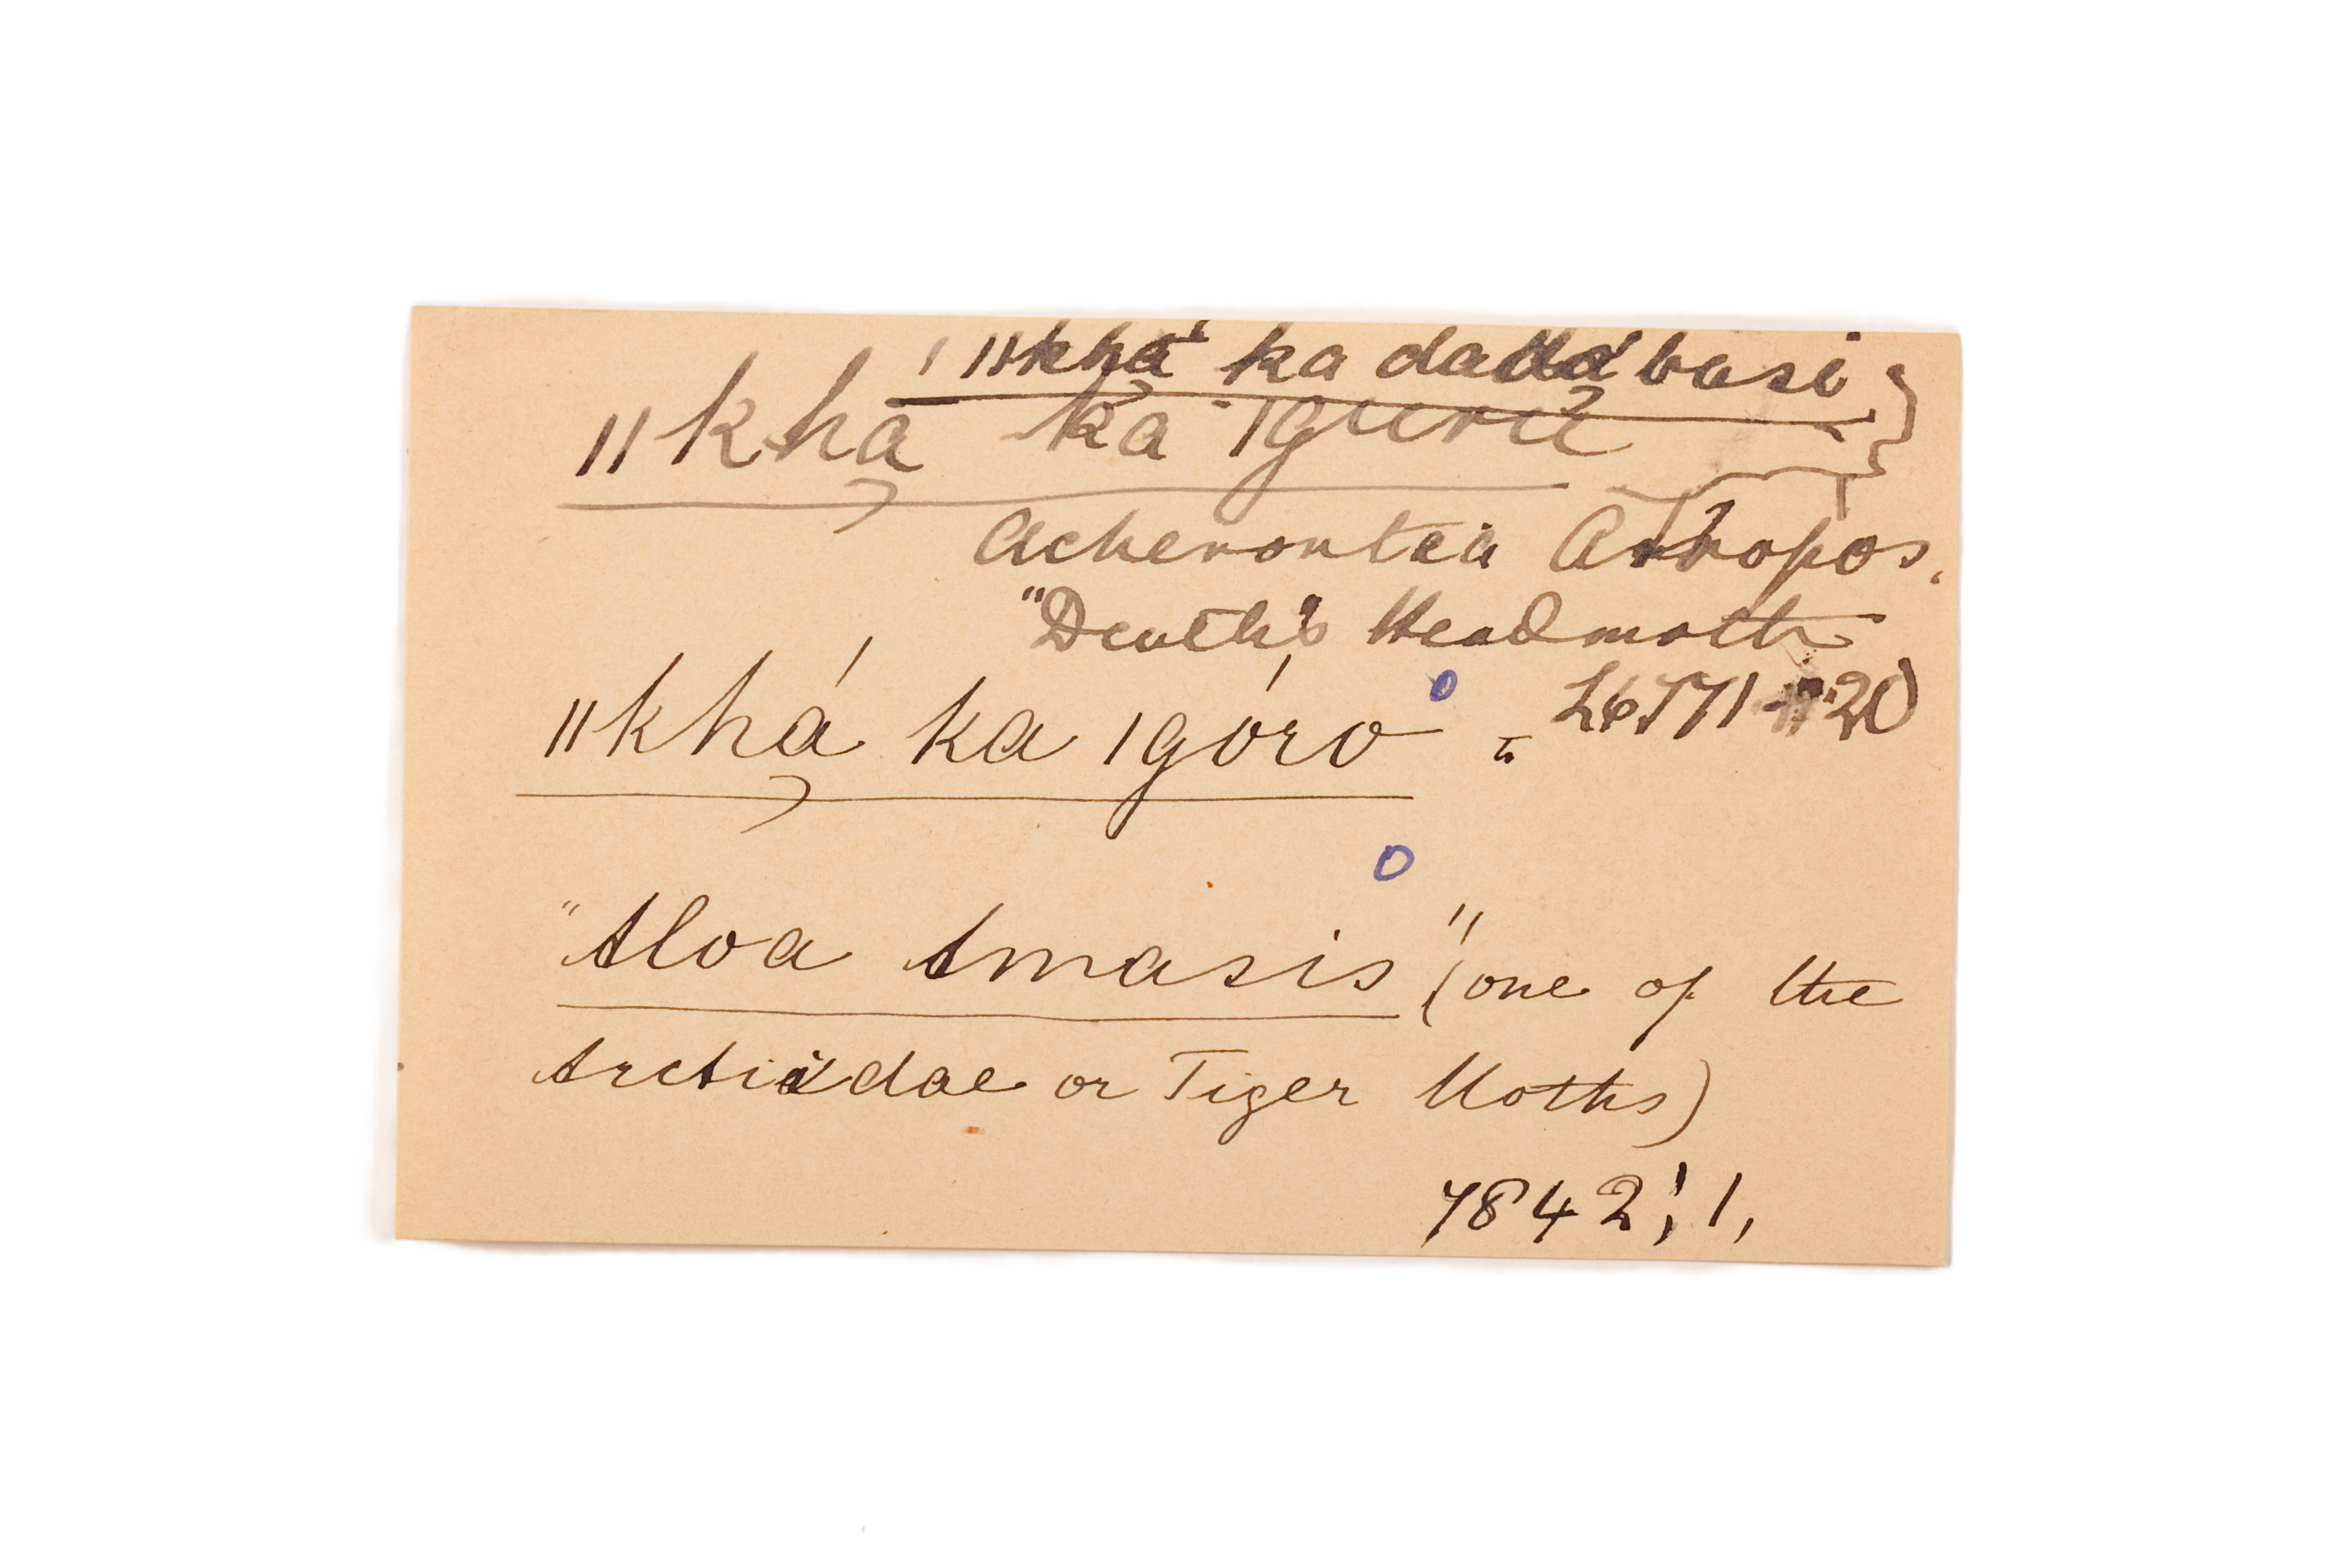 ǁkhá ka dadábasi }
ǁkhā ka ǀgurū
Acherontia Atropos.
"Death's Headmoth
ǁkhá ka ǀgóro = 
"Aloa Amasis" (one of the
Arctiidae or Tiger Moths)
7842; 1,